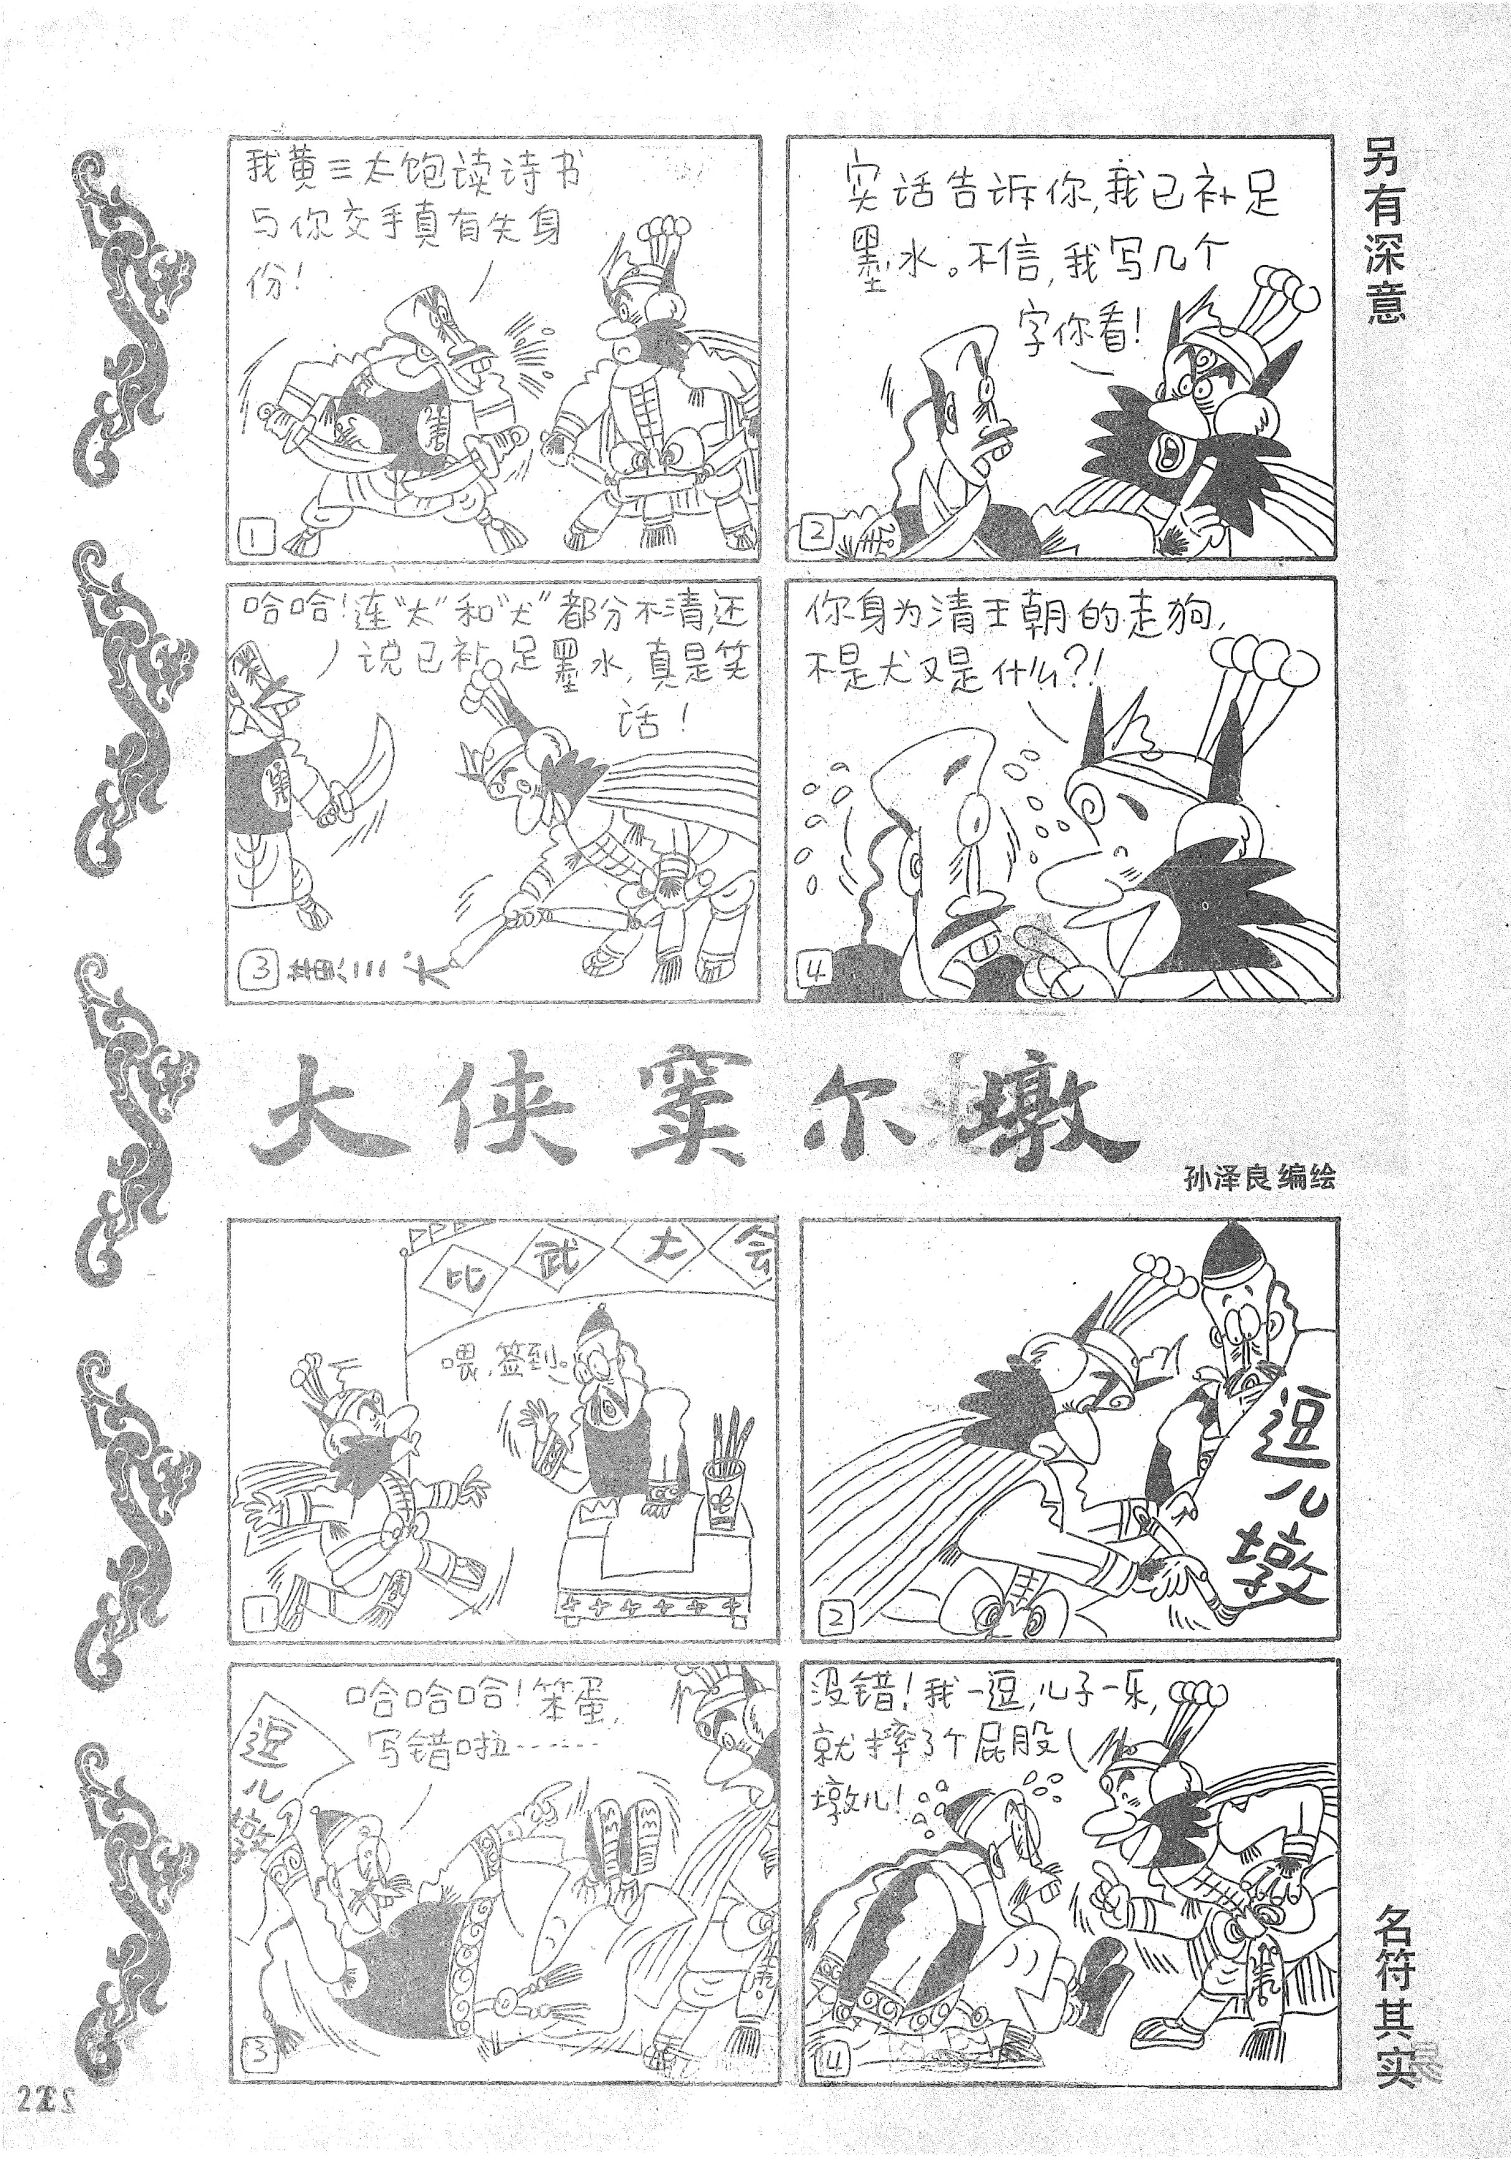 另有深意
我黄三太饱读诗书
与你交手真有失身
份!
1
实话告诉你,我已补足
墨水。不信,我写几个
字你看!
2
哈哈!连“太”和“犬”都分不清,还
说已补足墨水,真是笑
话!
3
黄三犬
你身为清王朝的走狗,
不是犬又是什么?!
4
大侠窦尔墩
孙泽良编绘
比武大会
喂,签到。
1
逗儿墩
2
哈哈哈!笨蛋,
写错啦……
逗儿墩
3
没错!我一逗,儿子一乐,
就摔了个屁股
墩儿!
4
名符其实